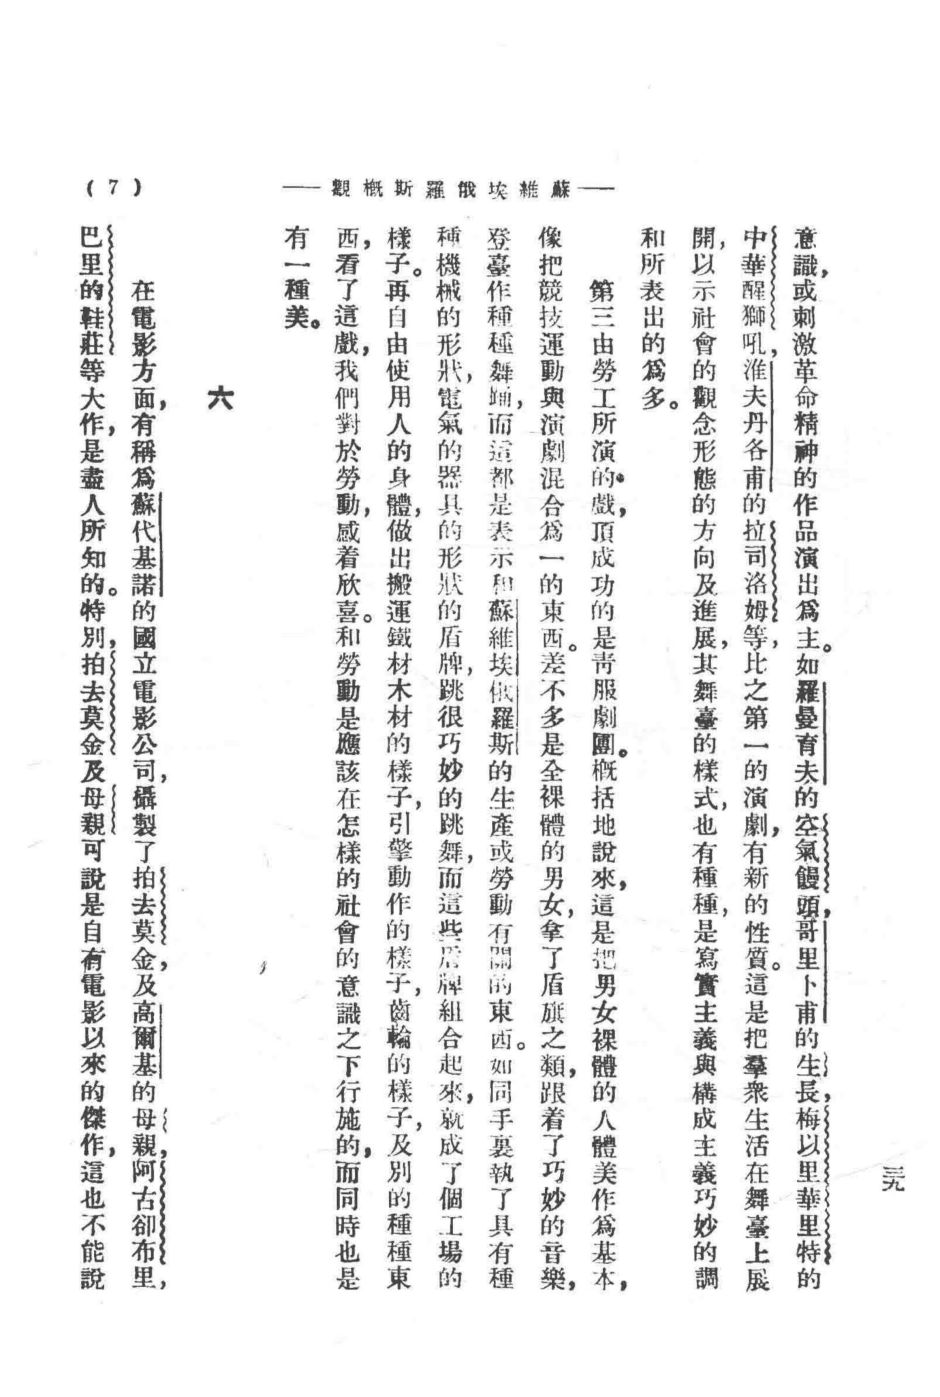 (7)
——蘇維埃俄羅斯概觀——
三九
意識,或刺激革命精神的作品演出爲主。如羅曼育夫的空氣饅頭,哥里卜甫的生長,梅以里華里特的
中華醒獅吼,淮夫丹各甫的拉司洛姆等,比之第一的演劇,有新的性質。這是把羣衆生活在舞臺上展
開,以示社會的觀念形態的方向及進展,其舞臺的樣式,也有種種,是寫實主義與構成主義巧妙的調
和所表出的爲多。
第三由勞工所演的戲,頂成功的是青服劇團。概括地說來,這是把男女裸體的人體美作爲基本,
像把競技運動與演劇混合爲一的東西。差不多是全裸體的男女,拿了盾旗之類,跟着了巧妙的音樂,
登臺作種種舞踊,而這都是表示和蘇維埃俄羅斯的生產或勞動有關的東西。如同手裏執了具有種
種機械的形狀,電氣的器具的形狀的盾牌,跳很巧妙的跳舞,而這些盾牌組合起來,就成了個工場的
樣子。再自由使用人的身體,做出搬運鐵材木材的樣子,引擎動作的樣子,齒輪的樣子,及別的種種東
西,看了這戲,我們對於勞動,感着欣喜。和勞動是應該在怎樣的社會的意識之下行施的,而同時也是
有一種美。
六
在電影方面,有稱爲蘇代基諾的國立電影公司,攝製了拍去莫金,及高爾基的母親,阿古卻布里,
巴里的鞋莊等大作,是盡人所知的。特別,拍去莫金及母親可說是自有電影以來的傑作,這也不能說